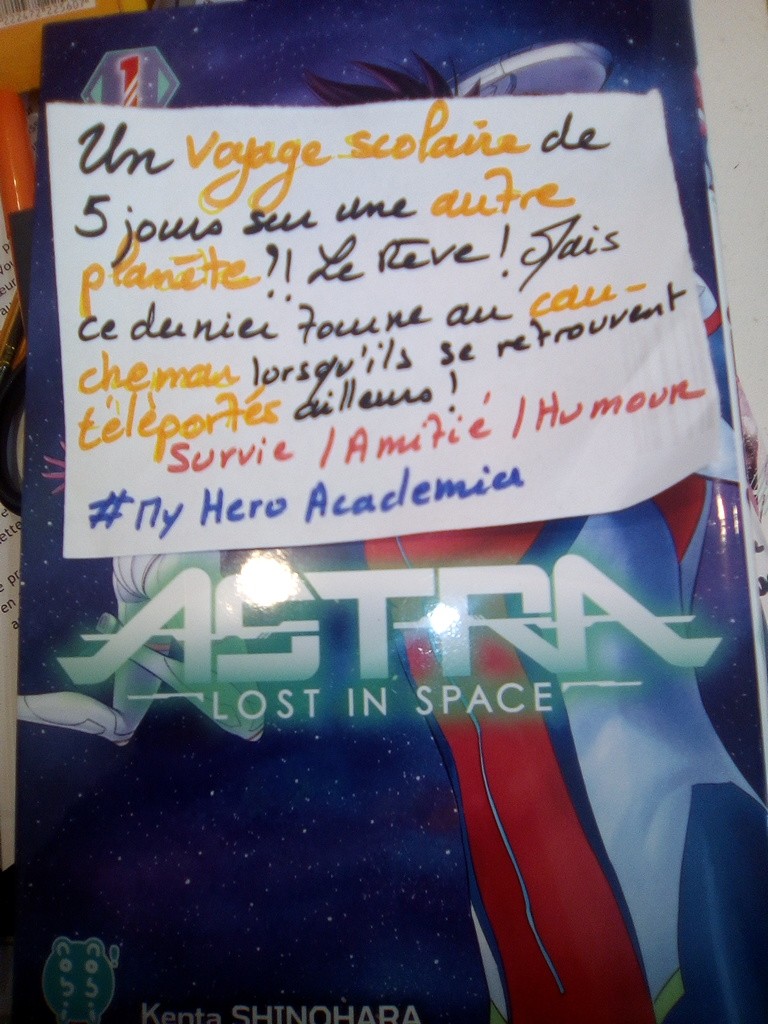 1
Un voyage scolaire de
5 jours sur une autre
planète?! Le Rêve! Mais
ce dernier tourne au cau-
chemar lorsqu'ils se retrouvent
téléportés ailleurs!
Survie / Amitié / Humour
#My Hero Academia
ASTRA
LOST IN SPACE
Kenta SHINOHARA